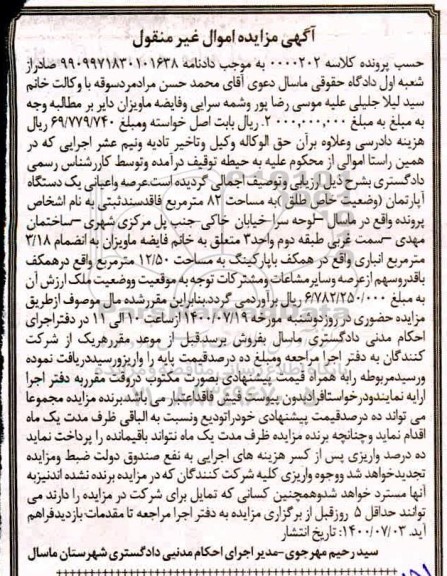 آگهی مزایده اموال غیر منقول
حسب پرونده کلاسه ۰۰۰۰۲۰۲ به موجب دادنامه ۹۹۰۹۹۷۱۸۳۰۱۰۱۶۳۸ صادراز
شعبه اول دادگاه حقوقی ماسال دعوی آقای محمد حسن مرادمردسوقه با وکالت خانم
سید لیلا جلیلی علیه موسی رضا پور وشمه سرایی وفایضه ماویزان دایر بر مطالبه وجه
به مبلغ به مبلغ ۲.۰۰۰,۰۰۰,۰۰۰ ریال بابت اصل خواسته ومبلغ ۶۹/۷۷۹/۷۴۰ ریال
هزینه دادرسی وعلاوه برآن حق الوکاله وکیل وتاخیر تادیه ونیم عشر اجرایی که در
همین راستا اموالی از محکوم علیه به حیطه توقیف درآمده وتوسط کارشناس رسمی
دادگستری بشرح ذیل ارزیابی وتوصیف اجمالی گردیده است.عرصه واعیانی یک دستگاه
آپارتمان (وضعیت خاص طلق) به مساحت ۸۲ مترمربع فاقدسندثبتی به نام اشخاص
پرونده واقع در ماسال –لوحه سرا-خیابان خاکی-جنب پل مرکزی شهری –ساختمان
مهدی –سمت غربی طبقه دوم واحد۳ متعلق به خانم فایضه ماویزان به انضمام ۳/۱۸
مترمربع انباری واقع در همکف باپارکینگ به مساحت ۱۲/۵۰ مترمربع واقع درهمکف
باقدروسهم ازعرصه وسایرمشاعات ومشترکات توجه به موقعیت ووضعیت ملک ارزش آن
به مبلغ ۶/۷۸۲/۲۵۰/۰۰۰ ریال برآوردمی گردد.بنابراین مقررشده مال موصوف ازطریق
مزایده حضوری در روزدوشنبه مورخه ۱۴۰۰/۰۷/۱۹ ازساعت ۱۰ الی ۱۱ در دفتراجرای
احکام مدنی دادگستری ماسال بفروش برسد.قبل از موعد مقررهریک از شرکت
کنندگان به دفتر اجرا مراجعه ومبلغ ده درصدقیمت پایه را واریزورسیددریافت نموده
ورسیدمربوطه رابه همراه قیمت پیشنهادی بصورت مکتوب دروقت مقرربه دفتر اجرا
ارایه نمایندودرخواستافرادبدون پیوست فیش فاقداعتبار می باشدبرنده مزایده مجموعا
می تواند ده درصدقیمت پیشنهادی خودراتودیع ونسبت به الباقی ظرف مدت یک ماه
اقدام نماید وچنانچه برنده مزایده ظرف مدت یک ماه نتواند باقیمانده را پرداخت نماید
ده درصد واریزی پس از کسر هزینه های اجرایی به نفع صندوق دولت ضبط ومزایده
تجدیدخواهد شد ووجوه واریزی کلیه شرکت کنندگان که در مزایده برنده نشده اندنیزبه
آنها مسترد خواهد شدوهمچنین کسانی که تمایل برای شرکت در مزایده را دارند می
توانند حداقل ۵ روزقبل از برگزاری مزایده به دفتر اجرا مراجعه تا مقدمات بازدیدفراهم
آید. ۱۴۰۰/۰۷/۰۳: تاریخ انتشار
سید رحیم مهرجوی-مدیر اجرای احکام مدنیی دادگستری شهرستان ماسال